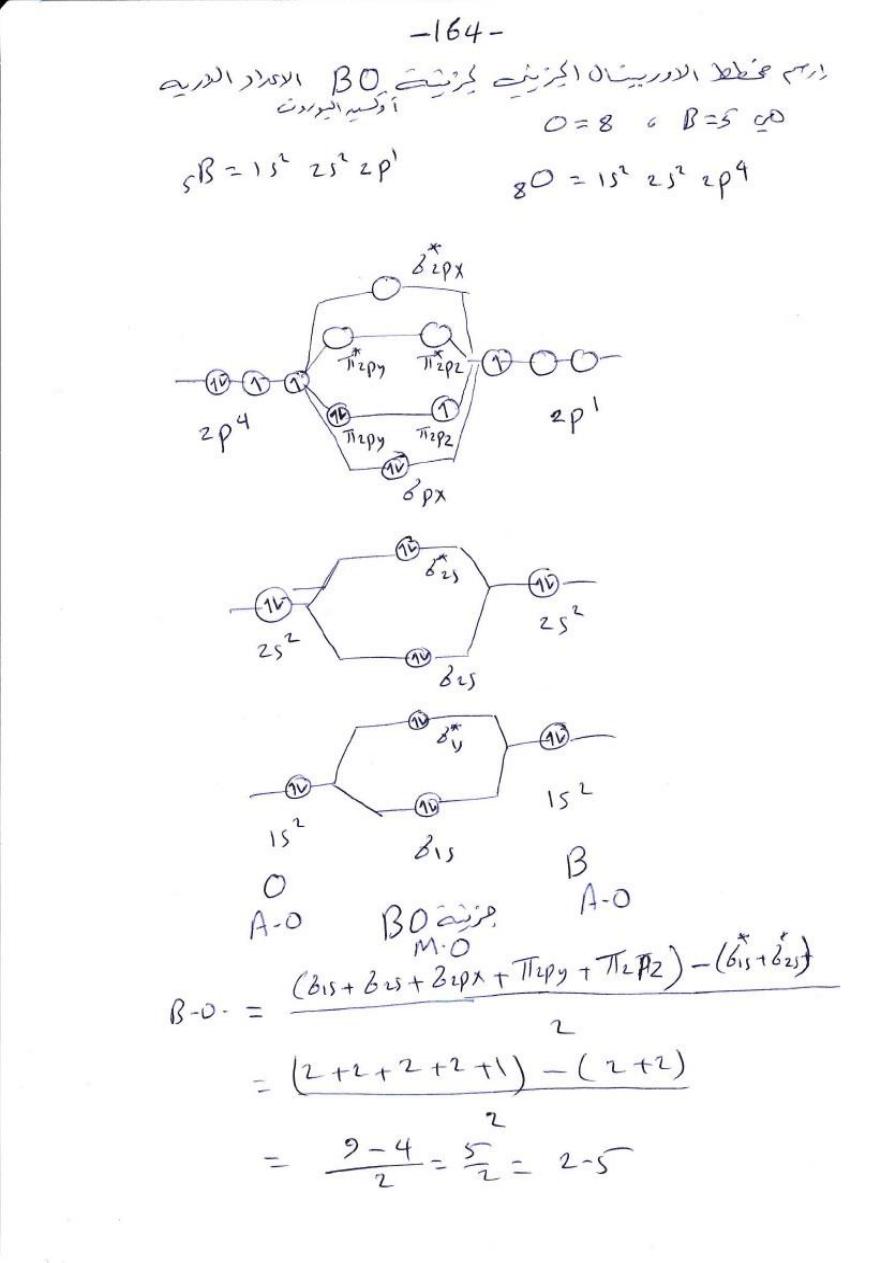 -164-
ارسم مخطط الاوربيتال الجزيئي لجزيئة BO الاعداد الذرية
أوكسيد البورون
هي B=5 ، O=8
5B = 1s² 2s² 2p¹
8O = 1s² 2s² 2p⁴
σ*2px
π*2py π*2pz
2p⁴ π2py π2pz 2p¹
σpx
σ*2s
2s² 2s²
σ2s
σ*1s
1s² 1s²
σ1s
O B
A-O جزيئة BO A-O
M.O
B-O. = (σ1s + σ2s + σ2px + π2py + π2pz) - (σ*1s + σ*2s)
2
= (2+2+2+2+1) - (2+2)
2
= 9-4/2 = 5/2 = 2-5